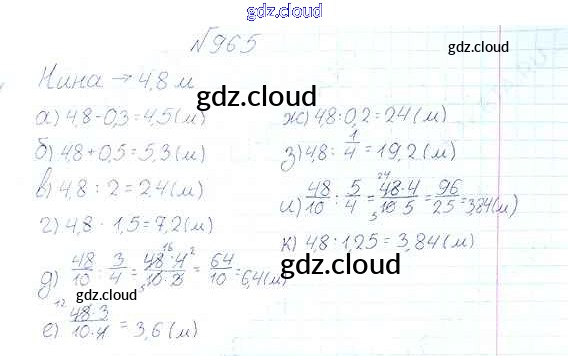 gdz.cloud
№965
gdz.cloud
Нина → 4,8 м
gdz.cloud
а) 4,8 - 0,3 = 4,5 (м)
б) 4,8 + 0,5 = 5,3 (м)
в) 4,8 : 2 = 2,4 (м)
г) 4,8 · 1,5 = 7,2 (м)
д) 48/10 : 3/4 = 48·4/10·3 = 64/10 = 6,4 (м)
gdz.cloud
е) 48·3/10·4 = 3,6 (м)
gdz.cloud
ж) 4,8 : 0,2 = 24 (м)
з) 4,8 : 1/4 = 19,2 (м)
и) 48/10 : 5/4 = 48·4/10·5 = 96/25 = 3,84 (м)
gdz.cloud
к) 4,8 : 1,25 = 3,84 (м)
gdz.cloud